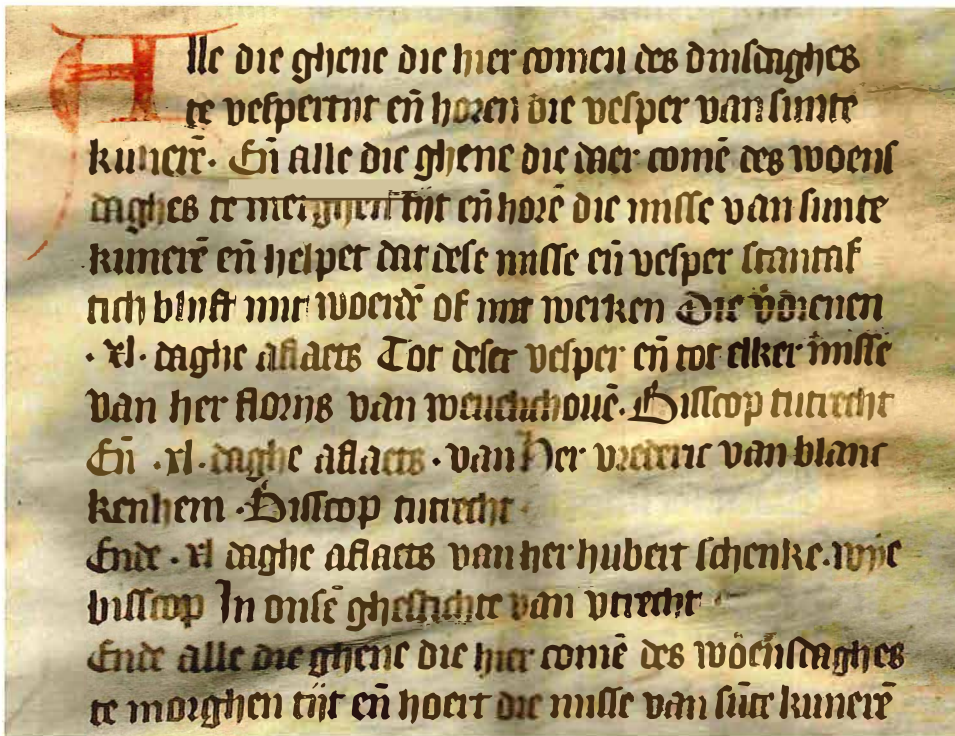 Alle die ghene die hier comen des dinsdaghes
te vespertijt eñ horen die vesper van sunte
kunerē. Eñ alle die ghene die daer comē des woens
daghes te merghen tijt eñ horē die misse van sunte
kunerē eñ helpet dat dese misse eñ vesper stantaf
tich blijft mit woerdē of mit werken Die v̄dienen
.xl. daghe aflaets Tot deser vesper eñ tot elker misse
van her florens van wevelichovē. Bisscop tutrecht
Eñ .xl. daghe aflaets. van her vrederic van blanc
kenhem. Bisscop tutrecht
Ende .xl daghe aflaets van her hubert schenke. wije
bisscop In onsē ghestichte van vtrecht
Ende alle die ghene die hier comē des woensdaghes
te morghen tijt eñ hoert die misse van sūte kunerē